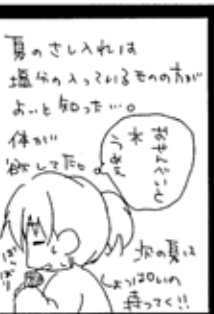 夏のさし入れは
塩分の入っているものの方が
よいと知った…。
体が
欲してた。
おせんべいと
水
うめえ
ぱり
ぱり
次の夏は
しょっぱいの
持ってく!!